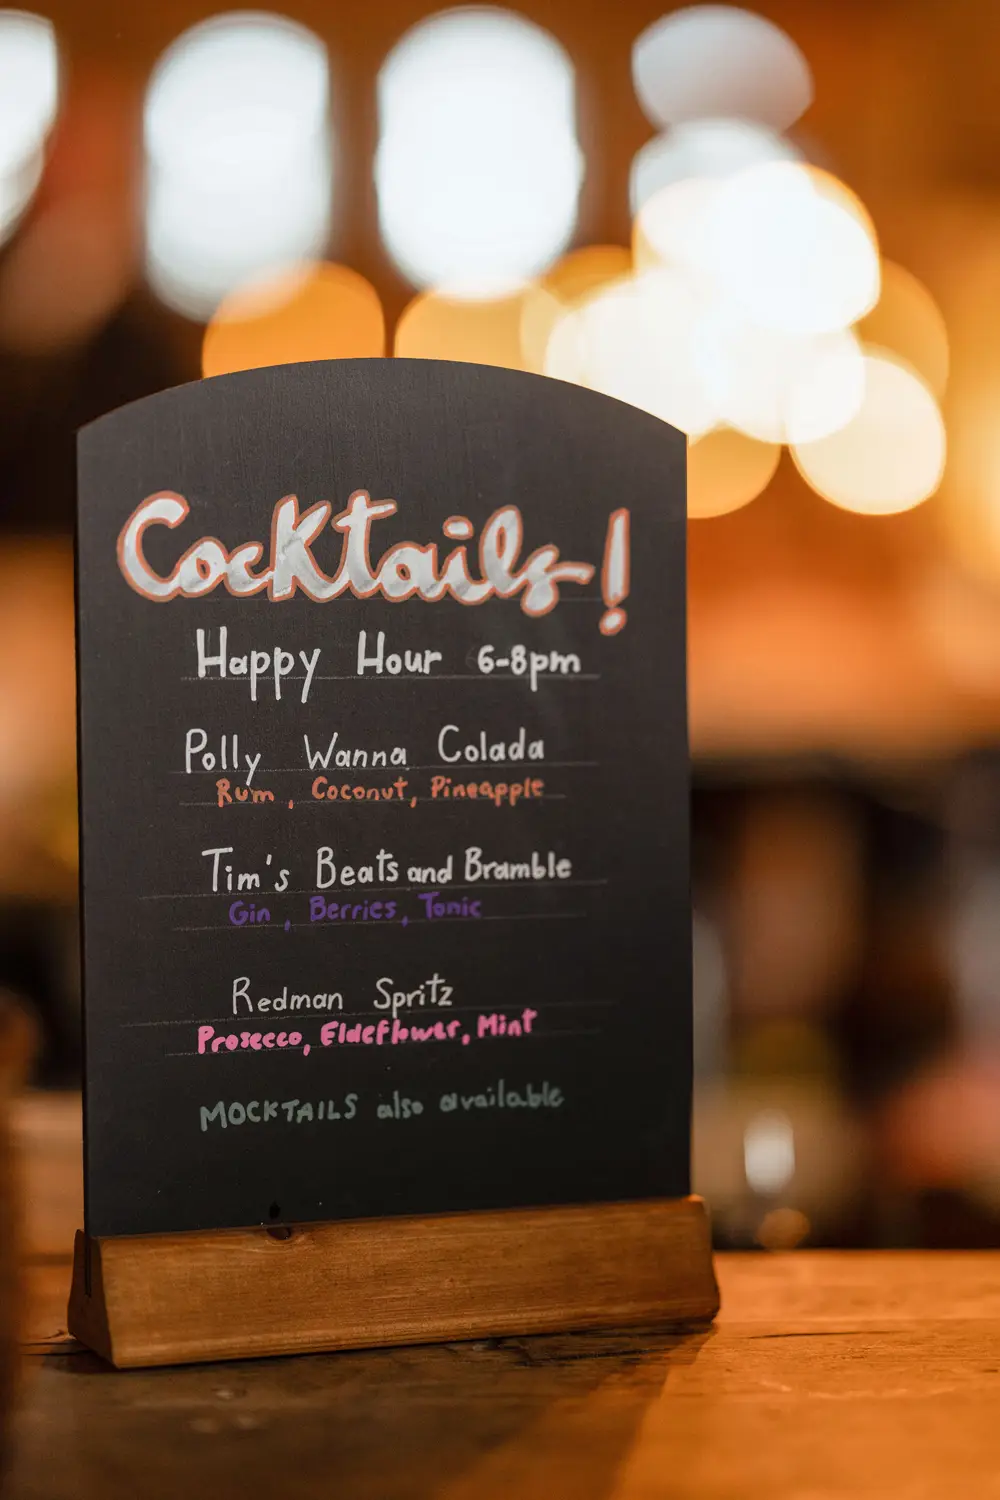 Cocktails!
Happy Hour 6-8pm
Polly Wanna Colada
Rum, Coconut, Pineapple
Tim's Beats and Bramble
Gin, Berries, Tonic
Redman Spritz
Prosecco, Elderflower, Mint
MOCKTAILS also available